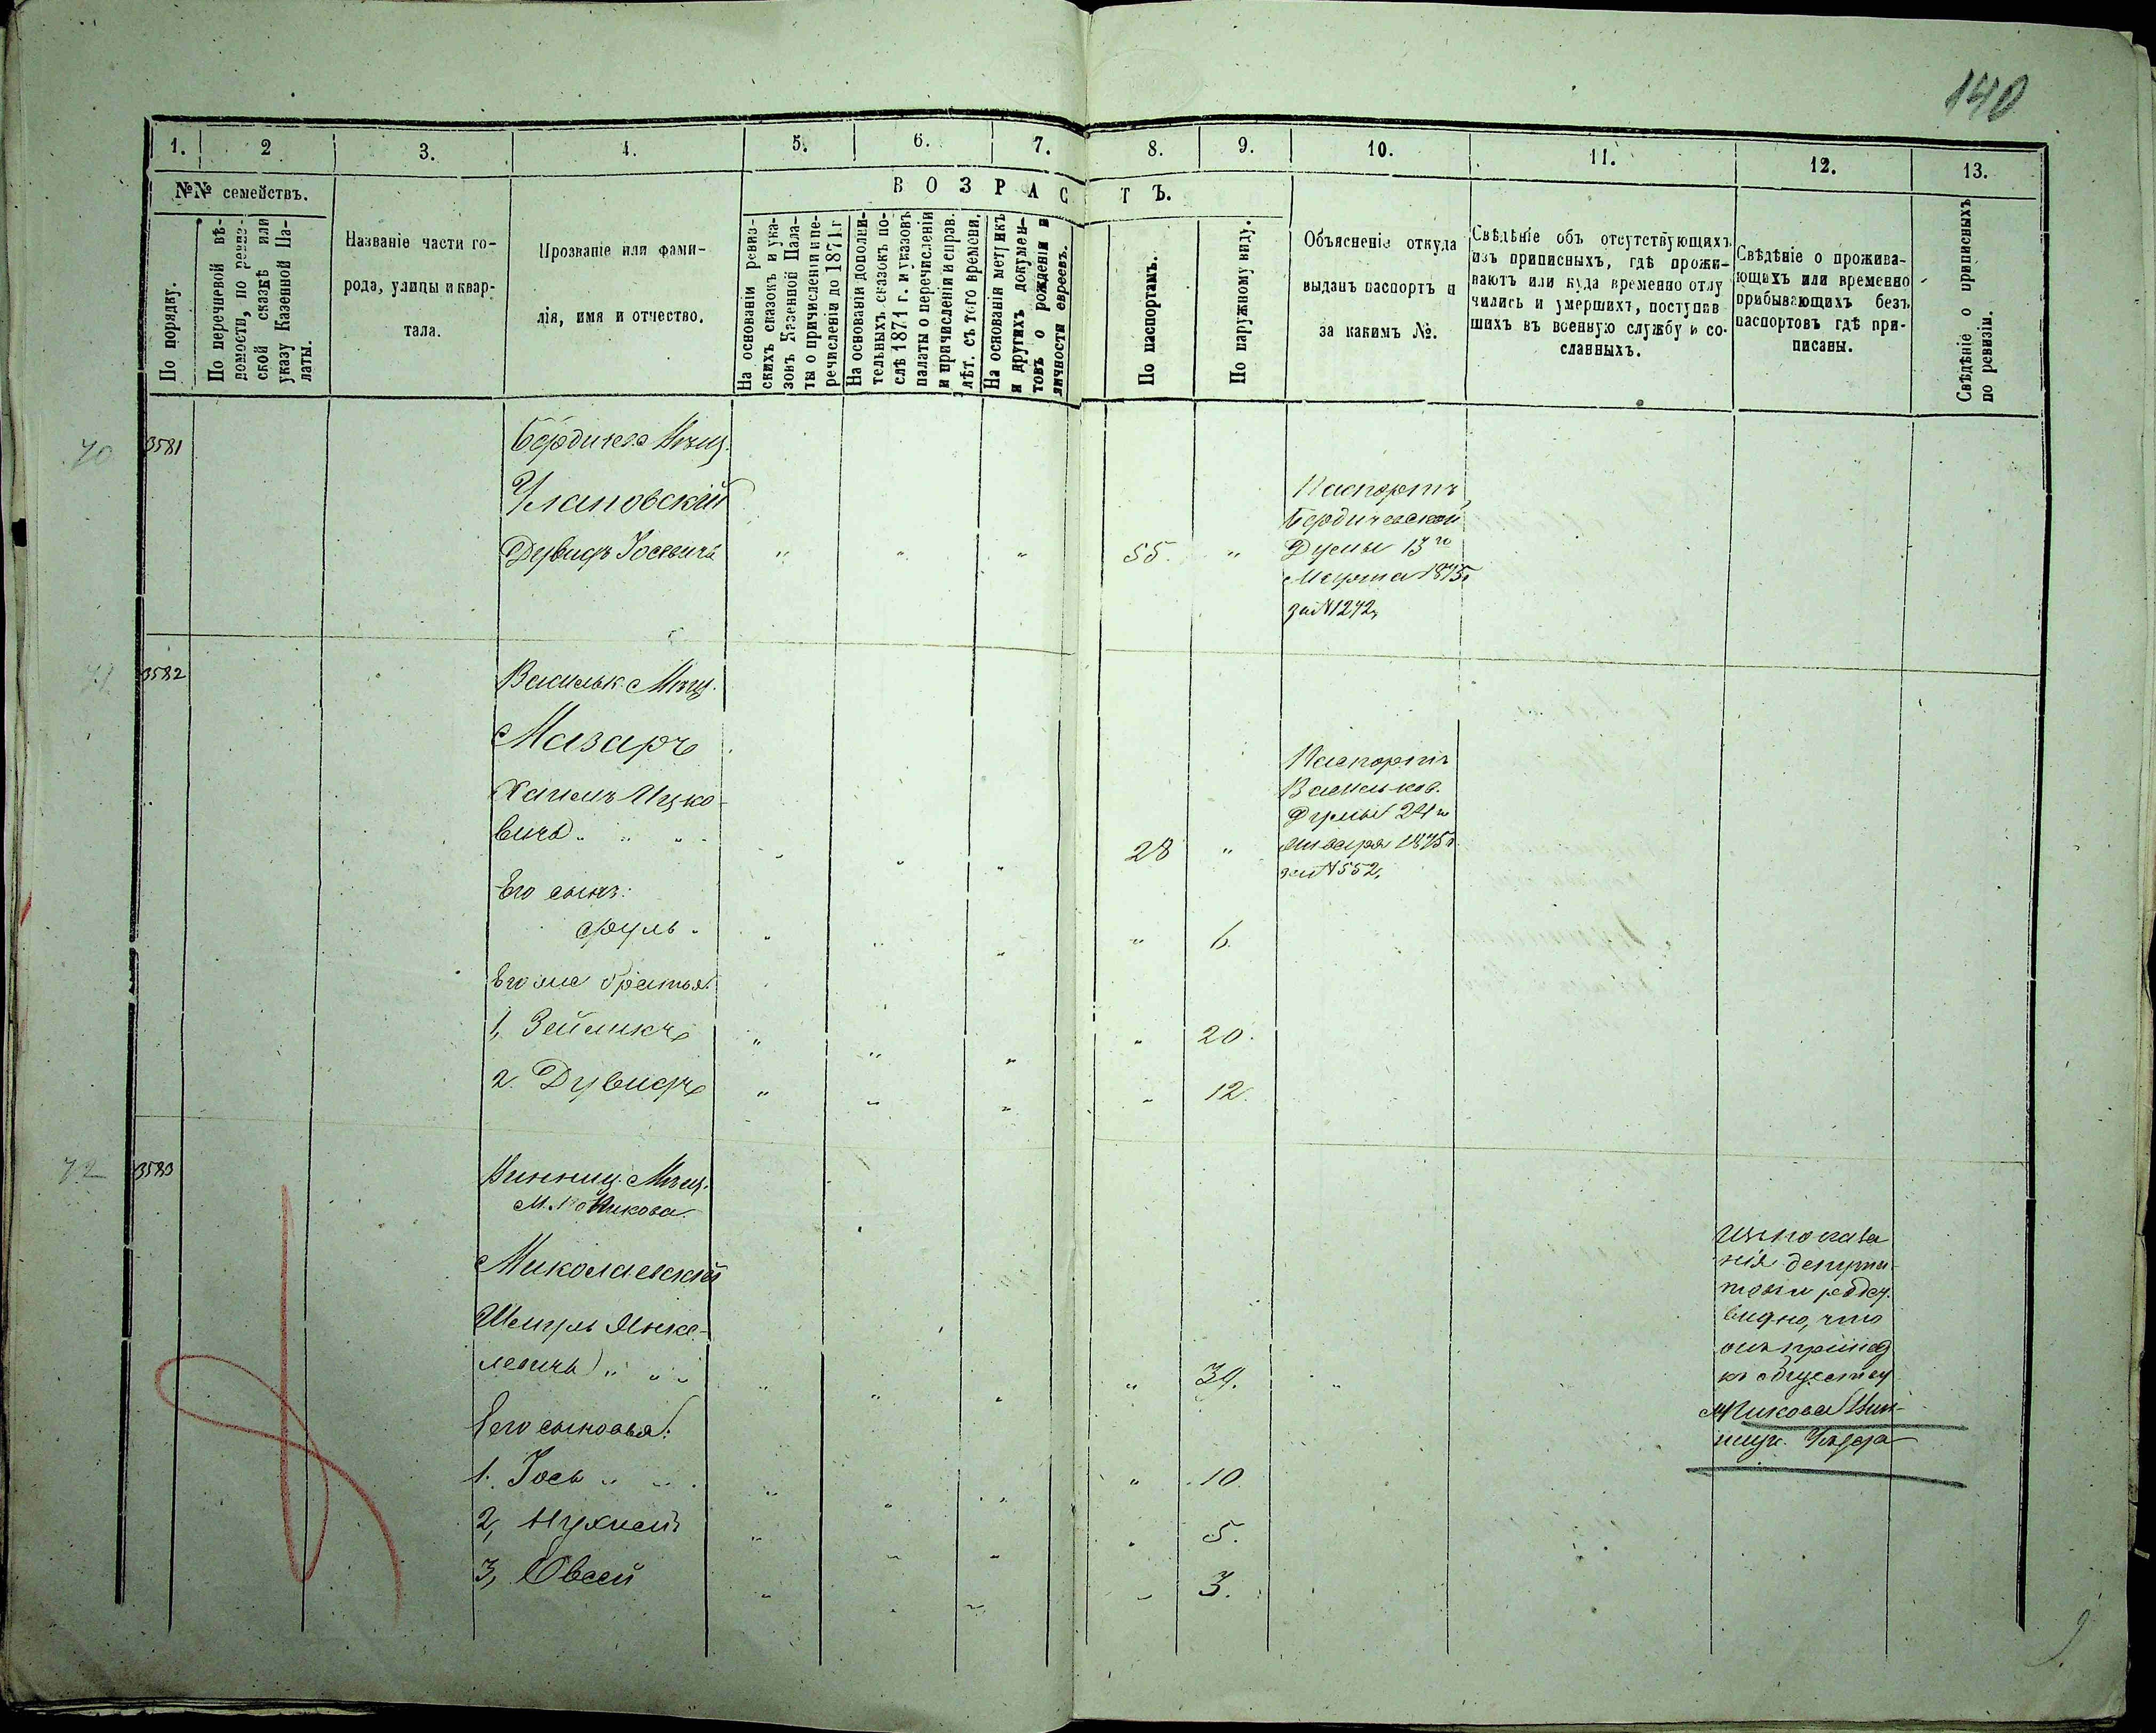 140
1. 2 3. 4. 5. 6. 7. 8. 9. 10. 11. 12. 13.
№№ семействъ.
По порядку.
По перечневой вѣ-
домости, по ревиз-
ской сказкѣ или
указу Казенной Па-
латы.
Названіе части го-
рода, улицы и квар-
тала.
Прозваніе или фами-
лія, имя и отчество.
ВОЗРАСТЪ.
На основаніи ревиз-
скихъ сказокъ и ука-
зовъ Казенной Пала-
ты о причисленіи и пе-
речисленіи до 1871 г.
На основаніи дополни-
тельныхъ сказокъ по-
слѣ 1871 г. и указовъ
палаты о перечисленіи
и причисленіи и справ.
лѣт. съ того времени.
На основаніи метрикъ
и другихъ докумен-
товъ о рожденіи и
личности евреевъ.
По паспортамъ.
По наружному виду.
Объясненіе откуда
выданъ паспортъ и
за какимъ №.
Свѣдѣніе объ отсутствующихъ
изъ приписныхъ, гдѣ прожи-
ваютъ или куда временно отлу
чились и умершихъ, поступив
шихъ въ военную службу и со-
сланныхъ.
Свѣдѣніе о прожива-
ющихъ или временно
прибывающихъ безъ
паспортовъ гдѣ при-
писаны.
Свѣдѣніе о приписныхъ
по ревизіи.
70 3581
Бердичев. Мѣщ.
Улановскій
Дувидъ Іосевичъ " " " 55. "
Паспортъ
Бердичевской
Думы 13го
Марта 1875г
за №1272,
71 3582
Васильк. Мѣщ.
Мазаръ
Хаимъ Ицко-
вичъ " " " 28 "
Паспортъ
Васильков.
Думы 24го
Января 1875г
за №552.
Его сынъ:
Сруль " " " " 6.
Его же братья:
1, Зейликъ " " " " 20.
2. Дувидъ " " " " 12.
72 3583
Винниц. Мѣщ.
М. Пикова.
Миколаевскій
Шмуль Янке-
левичъ " " " " 34. "
Его сыновья:
1. Іось " " " " 10.
2, Нухимъ " " " " 5.
3, Овсей " " " " 3.
Изъ показа
нія депута
видно, что
онъ принад
къ обществу
м. Пикова Вин-
ницк. Уѣзда